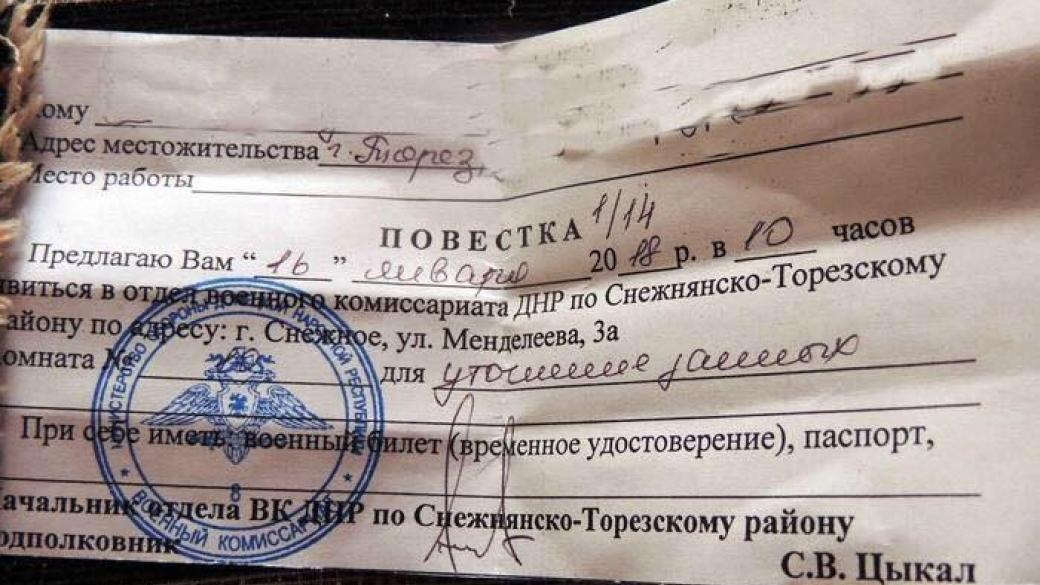 кому
Адрес местожительства г. Торез,
Место работы
ПОВЕСТКА 1/14
Предлагаю Вам “16” января 2018 р. в 10 часов
явиться в отдел военного комиссариата ДНР по Снежнянско-Торезскому
району по адресу: г. Снежное, ул. Менделеева, 3а
комната № для уточнение данных
При себе иметь: военный билет (временное удостоверение), паспорт,
Начальник отдела ВК ДНР по Снежнянско-Торезскому району
подполковник
С.В. Цыкал
МИНИСТЕРСТВО ОБОРОНЫ ДОНЕЦКОЙ НАРОДНОЙ РЕСПУБЛИКИ
8
ВОЕННЫЙ КОМИССАРИАТ